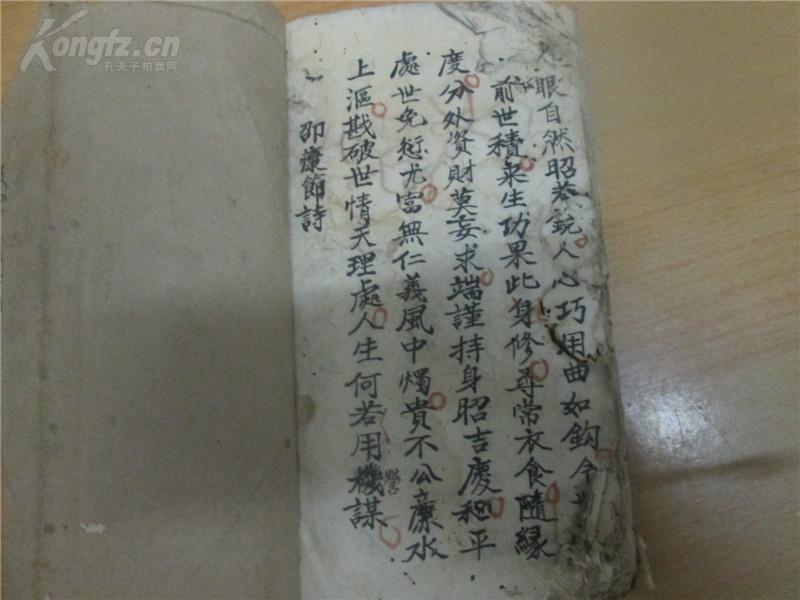 眼自然昭若鏡人心巧用曲如鈎今
前世積來生功果此身修尋常衣食隨緣
度分外資財莫妄求端謹持身昭吉慶和平
處世免愆尤富無仁義風中燭貴不公廉水
上漚戡破世情天理處人生何若用機謀
營
邵康節詩
Kongfz.cn
孔夫子拍卖网